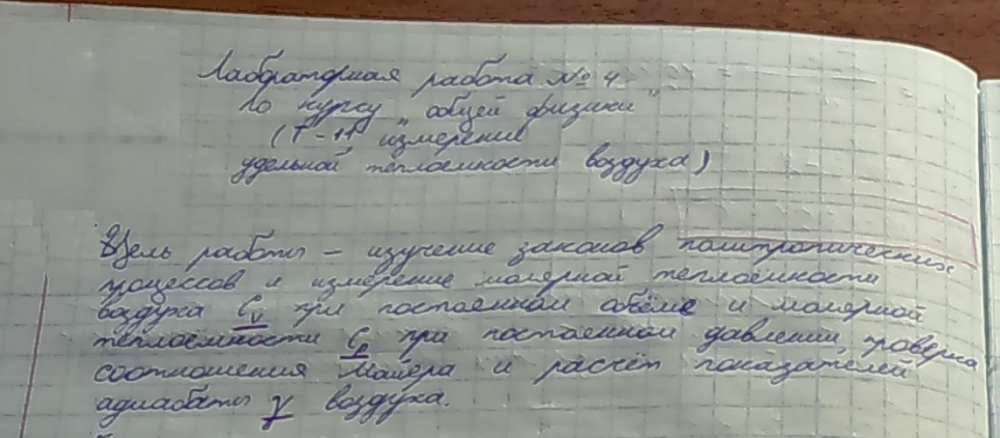 Лабораторная работа № 4
по курсу „общей физики"
(Т-11 измерении
удельной теплоёмкости воздуха)
Цель работы – изучение законов политропических
процессов и измерение молярной теплоёмкости
воздуха Cv при постоянном объёме и молярной
теплоёмкости Cp при постоянном давлении, проверка
соотношения Майера и расчёт показателей
адиабаты γ воздуха.